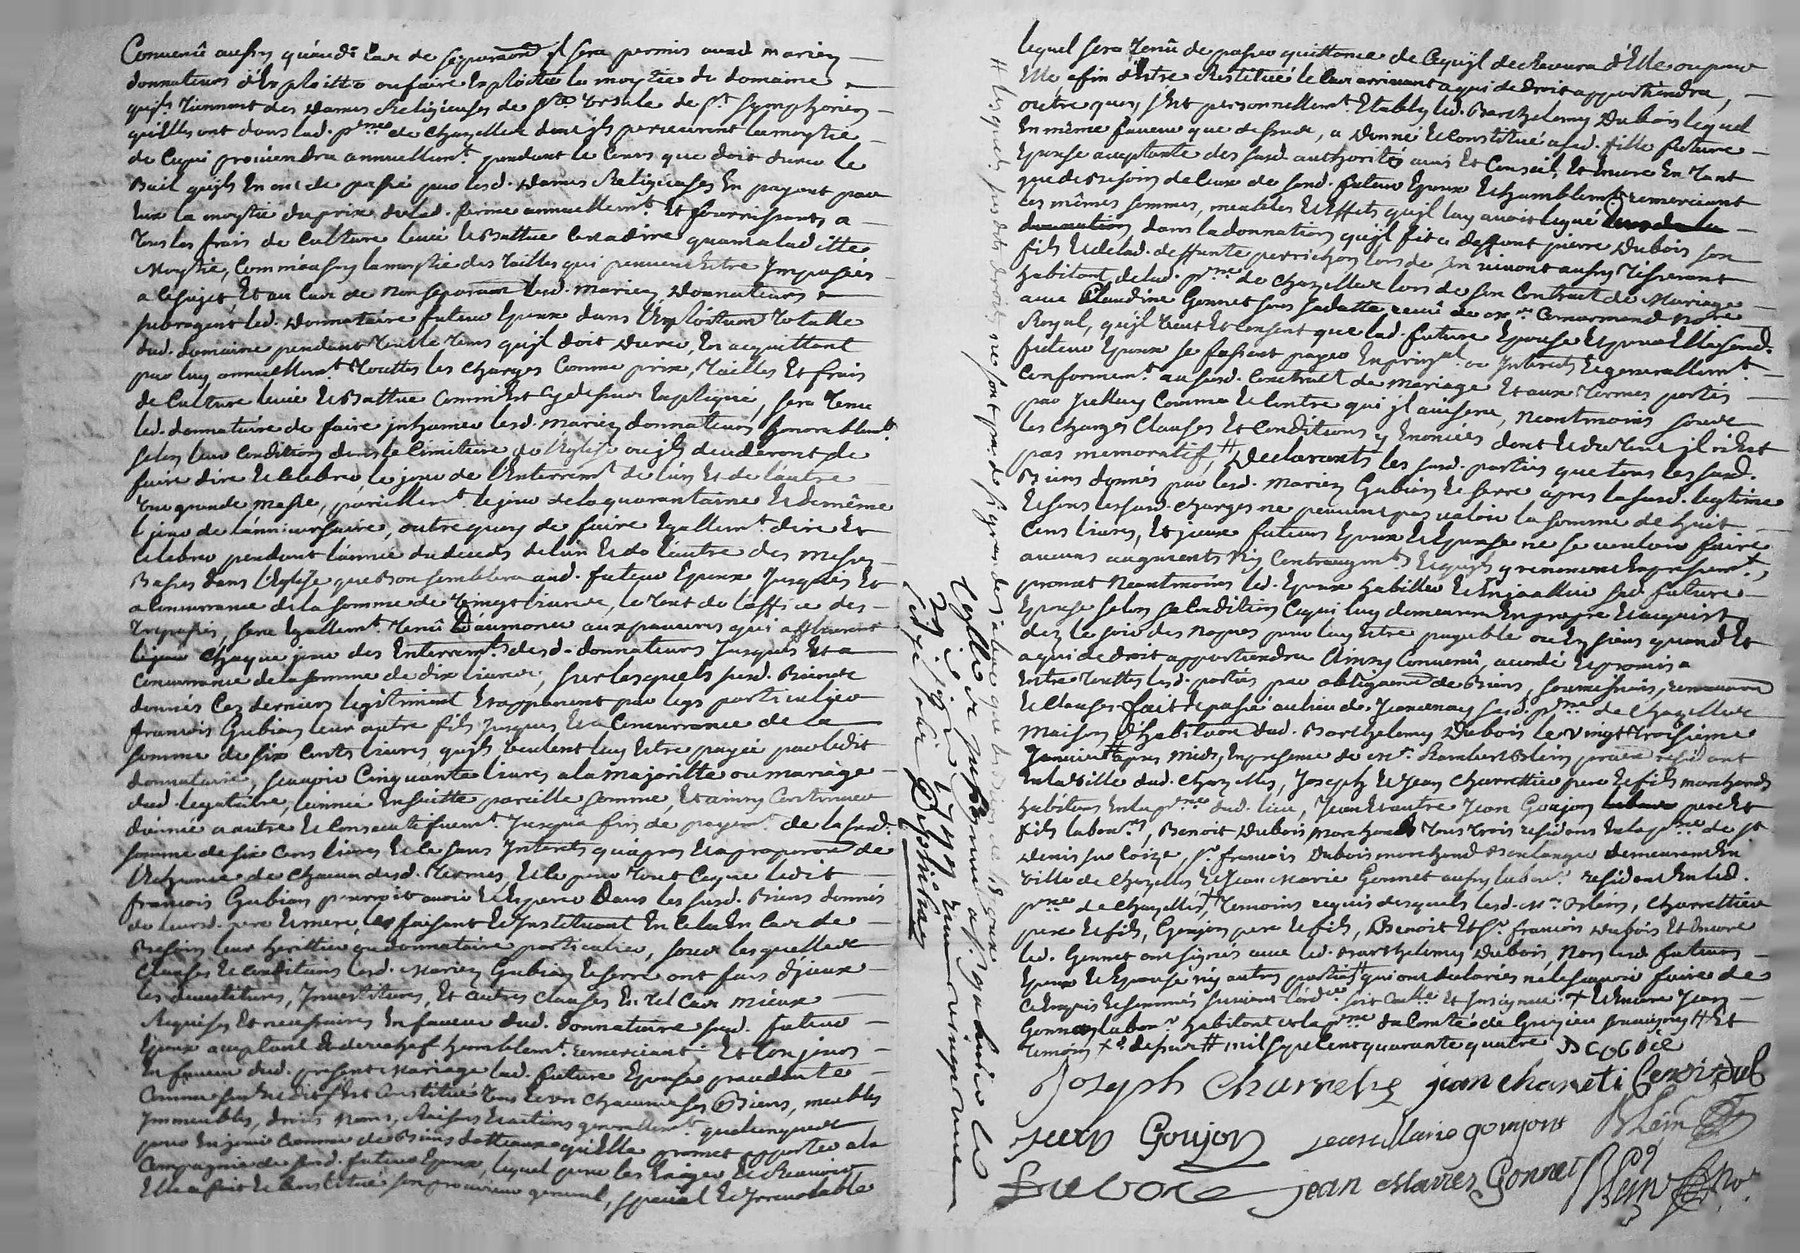 Convenü aussy, qu'audt cas de séparaon il sera permis auxd. mariez
donnateurs d'exploitter ou faire exploitter la moytie du domaine
qu'jls tiennent des Dames Religieuses de Ste Ursule de St Symphorien
qu'elles ont dans lad. pnne de Chazelles dont jls percevront la moytie
de ce qui proviendra annuellemt. pendant le cours que doit durer le
Bail qu'jls En ont de passé par lesd. Dames Religieuses En payent par
Eux la moytie du prix de lad. ferme annuellemt. Et fournissants a
tous les frais de Culture levée Et Battue Cera dire quant a laditte
Moytie, Comme aussy la moytie des tailles qui peuvent Estre Imposées
a ce sujet, Et au Cas de non separaon lesd. mariez Donnateurs
subrogent led. Donnataire futeur Epoux dans l'Exploitaon totalle
dud. domaine pendant tout le tems qu'jl doit Durer, En acquittant
par luy annuellemt. touttes les charges Comme prix, tailles Et frais
de Culture levée Et Battue Comm'Est cy dessus Expliqué, sera tenu
led. donnataire de faire jnhumer lesd. mariez donnateurs honorablemt.
selon leur Condition dans le Cimitiere de l'Eglise ou jls decederont de
faire dire Et Celebrer le jour de l'Enterremt. de l'un Et de l'autre
Une grande messe, pareillemt. le jour de la quarantaine Et de même
le jour de l'anniversaire, outre quoy de faire Egallemt. dire Et
Celebrer pendant l'année du deceds de l'un Et de l'autre des messes
Basses dans l'Eglise que Bon semblera aud. futeur Epoux Jusques Et
a Concurrance de la somme de vingt livres, le tout de l'office des
trepassés, sera Egallemt. tenü d'aumoner aux pauvres qui
le jour chaque jour des Enterremts. desd. donnateurs Jusques Et a
Concurrance de la somme de dix livres, sur lesquels susd. Biens
donnés Ces derniers legitiment Et apparent par legs particulier
francois Gubian leur autre fils Jusques Et a Concurrance de la
somme de six Cents livres, qu'jls veulent luy Estre payée par ledit
donnataire, scavoir Cinquante livres a la majoritte ou mariage
dud. legataire, l'année En suitte pareille somme, Et ainsy Continuer
d'année a autre Et Consecutifvemt. Jusqu'a fin de payemt. de la susd.
somme de six Cens livres Et Ce sans Interets qu'apres Et a proporon de
l'Echeance de chacun desd. termes, Et Ce pour tout Ce que ledit
francois Gubian pourroit avoir Et Esperer Dans les susd. Biens donnés
de leursd. pere Et mere, les faisant Et Instituant En Cela En Cas de
Besoin leur heritier ou donnataire particulier, sous lesquelles
Clauses Et Conditions lesd. Mariez Gubian Et Serre ont fait d'jceux
les devestitures, Investitures, Et autres clauses En tel Cas mieux
Requises Et necessaires En faveur dud. Donnataire susd. futeur
Epoux acceptant Et derechef humblemt. remerciant; Et toujours
En faveur dud. present Mariage lad. future Epouse procedante
Comme sus Est dit s'Est Constitué tous Et un Chacuns ses Biens, meubles
Immeubles, droits Noms, Raisons Et actions generalemt. quelconques
pour En jouir Comme de Biens dottaux qu'Elle promet apporter a la
Compagnie de sond. futeur Epoux, lequel pour les Exiger Et Recouvrer
Elle a fait Et Constitué son procureur general, special Et Irrevocable
lequel sera tenü de passer quittance de Ce qu'jl Recevra d'Elle ou pour
Elle afin d'Estre Restitué le Cas arrivant a qui de droit appartiendra,
outre quoy, s'Est personnellemt. Etably led. Barthelemy Dubois lequel
En même faveur que dessus, a Donné Et Constitué a sad. fille future
Epouse acceptante des susd. authorité avis Et Conseil, Et Encore En tant
que de Besoin de Ceux de sond. futeur Epoux Et humblemt. remerciant
les mêmes sommes, meubles Et Effets qu'jl luy avoit legué
dans la donnation qu'jl fit a deffunt pierre Dubois son
fils Et de lad. deffunte perrichon lors de son vivant aussy tisserant
habitant de lad. pnne de Chazelles lors de son Contract de Mariage
avec Claudine Gonnet sous sa datte receü de me Comarmond Nore
Royal, qu'jl veut Et Consent que lad. future Epouse Et pour Elle sond.
futeur Epoux se fassent payer En principal ou Interets Et generallemt.
Conformemt. au susd. Contract de mariage Et aux termes portés
par Icelluy Comme Et Contre qui jl avisera, Neantmoins sous
les charges Clauses Et Conditions y Enoncées dont Et du tout jl n'Est
pas memoratif, # Declarants les susd. parties que tous les susd.
Biens donnés par lesd. Mariez Gubian Et Serre apres la susd. legitime
Et sous les susd. charges ne peuvent pas valoir la somme de huit
Cens livres, Et jceux futeurs Epoux Et Epouse ne se vouloir faire
aucuns augments Ny Contraugmts. Et quoy y renoncent Expressemt.,
promet Neantmoins led. Epoux habiller Et Enjoailler sad. future
Epouse selon sa Condition Ce qui luy demeurera En propre Et acquis
dez le soir des Nopces pour luy Estre payable ou En siens quand Et
a qui de droit appartiendra Ainsy Convenü, accordé Et promis
Entre touttes lesd. parties par obligaons de Biens, soumissions, renonciaon
Et Clauses fait Et passé au lieu de Jeancenay susd. pnne de Chazelles
Maison d'habitaon dud. Barthelemy Dubois le vingt troisieme
Janvier # apres midy, En presence de mr. Rambert Blein praticn resident
En la Ville dud. Chazelles, Joseph Et Jean Charrettier pere Et fils marchands
habitans En la pnne dud. lieu, Jean Et autre Jean Goujon pere Et
fils labours, Benoit Dubois marchand tous trois residens En la pnne de St
Denis sur Coize, sr. francois Dubois marchand Boulanger demeurant En
Ville de Chazelles Et Jean Marie Gonnet aussy labour. resident En lad.
pnne de Chazelles + temoins requis desquels lesd. Mre Blein, Charrettier
pere Et fils, Goujon pere Et fils, Benoit Et sr. francois Dubois Et Encore
led. Gonnet ont signés avec led. Barthelemy Dubois, Non lesd. futeurs
Epoux Et Epouse ny autres parties qui ont declarées ne le scavoir faire de
Ce Enquis Et sommés suivant l'ordce soit Contlé Et Insignué. + Et Encore Jean
Gonnet labour. habitant En la pnne du Comté de Grezieu souvigny # Et
temoin +s dessus # mil sept cent quarante quatre DuBois
Joseph Charretie jean chareti Benoit dub
Jean Goujon jean Marie goujont Blein
Dubois jean Marie Gonnet Blein Nore
# lesquels susdits droits ne sont pas de si grande valeur que